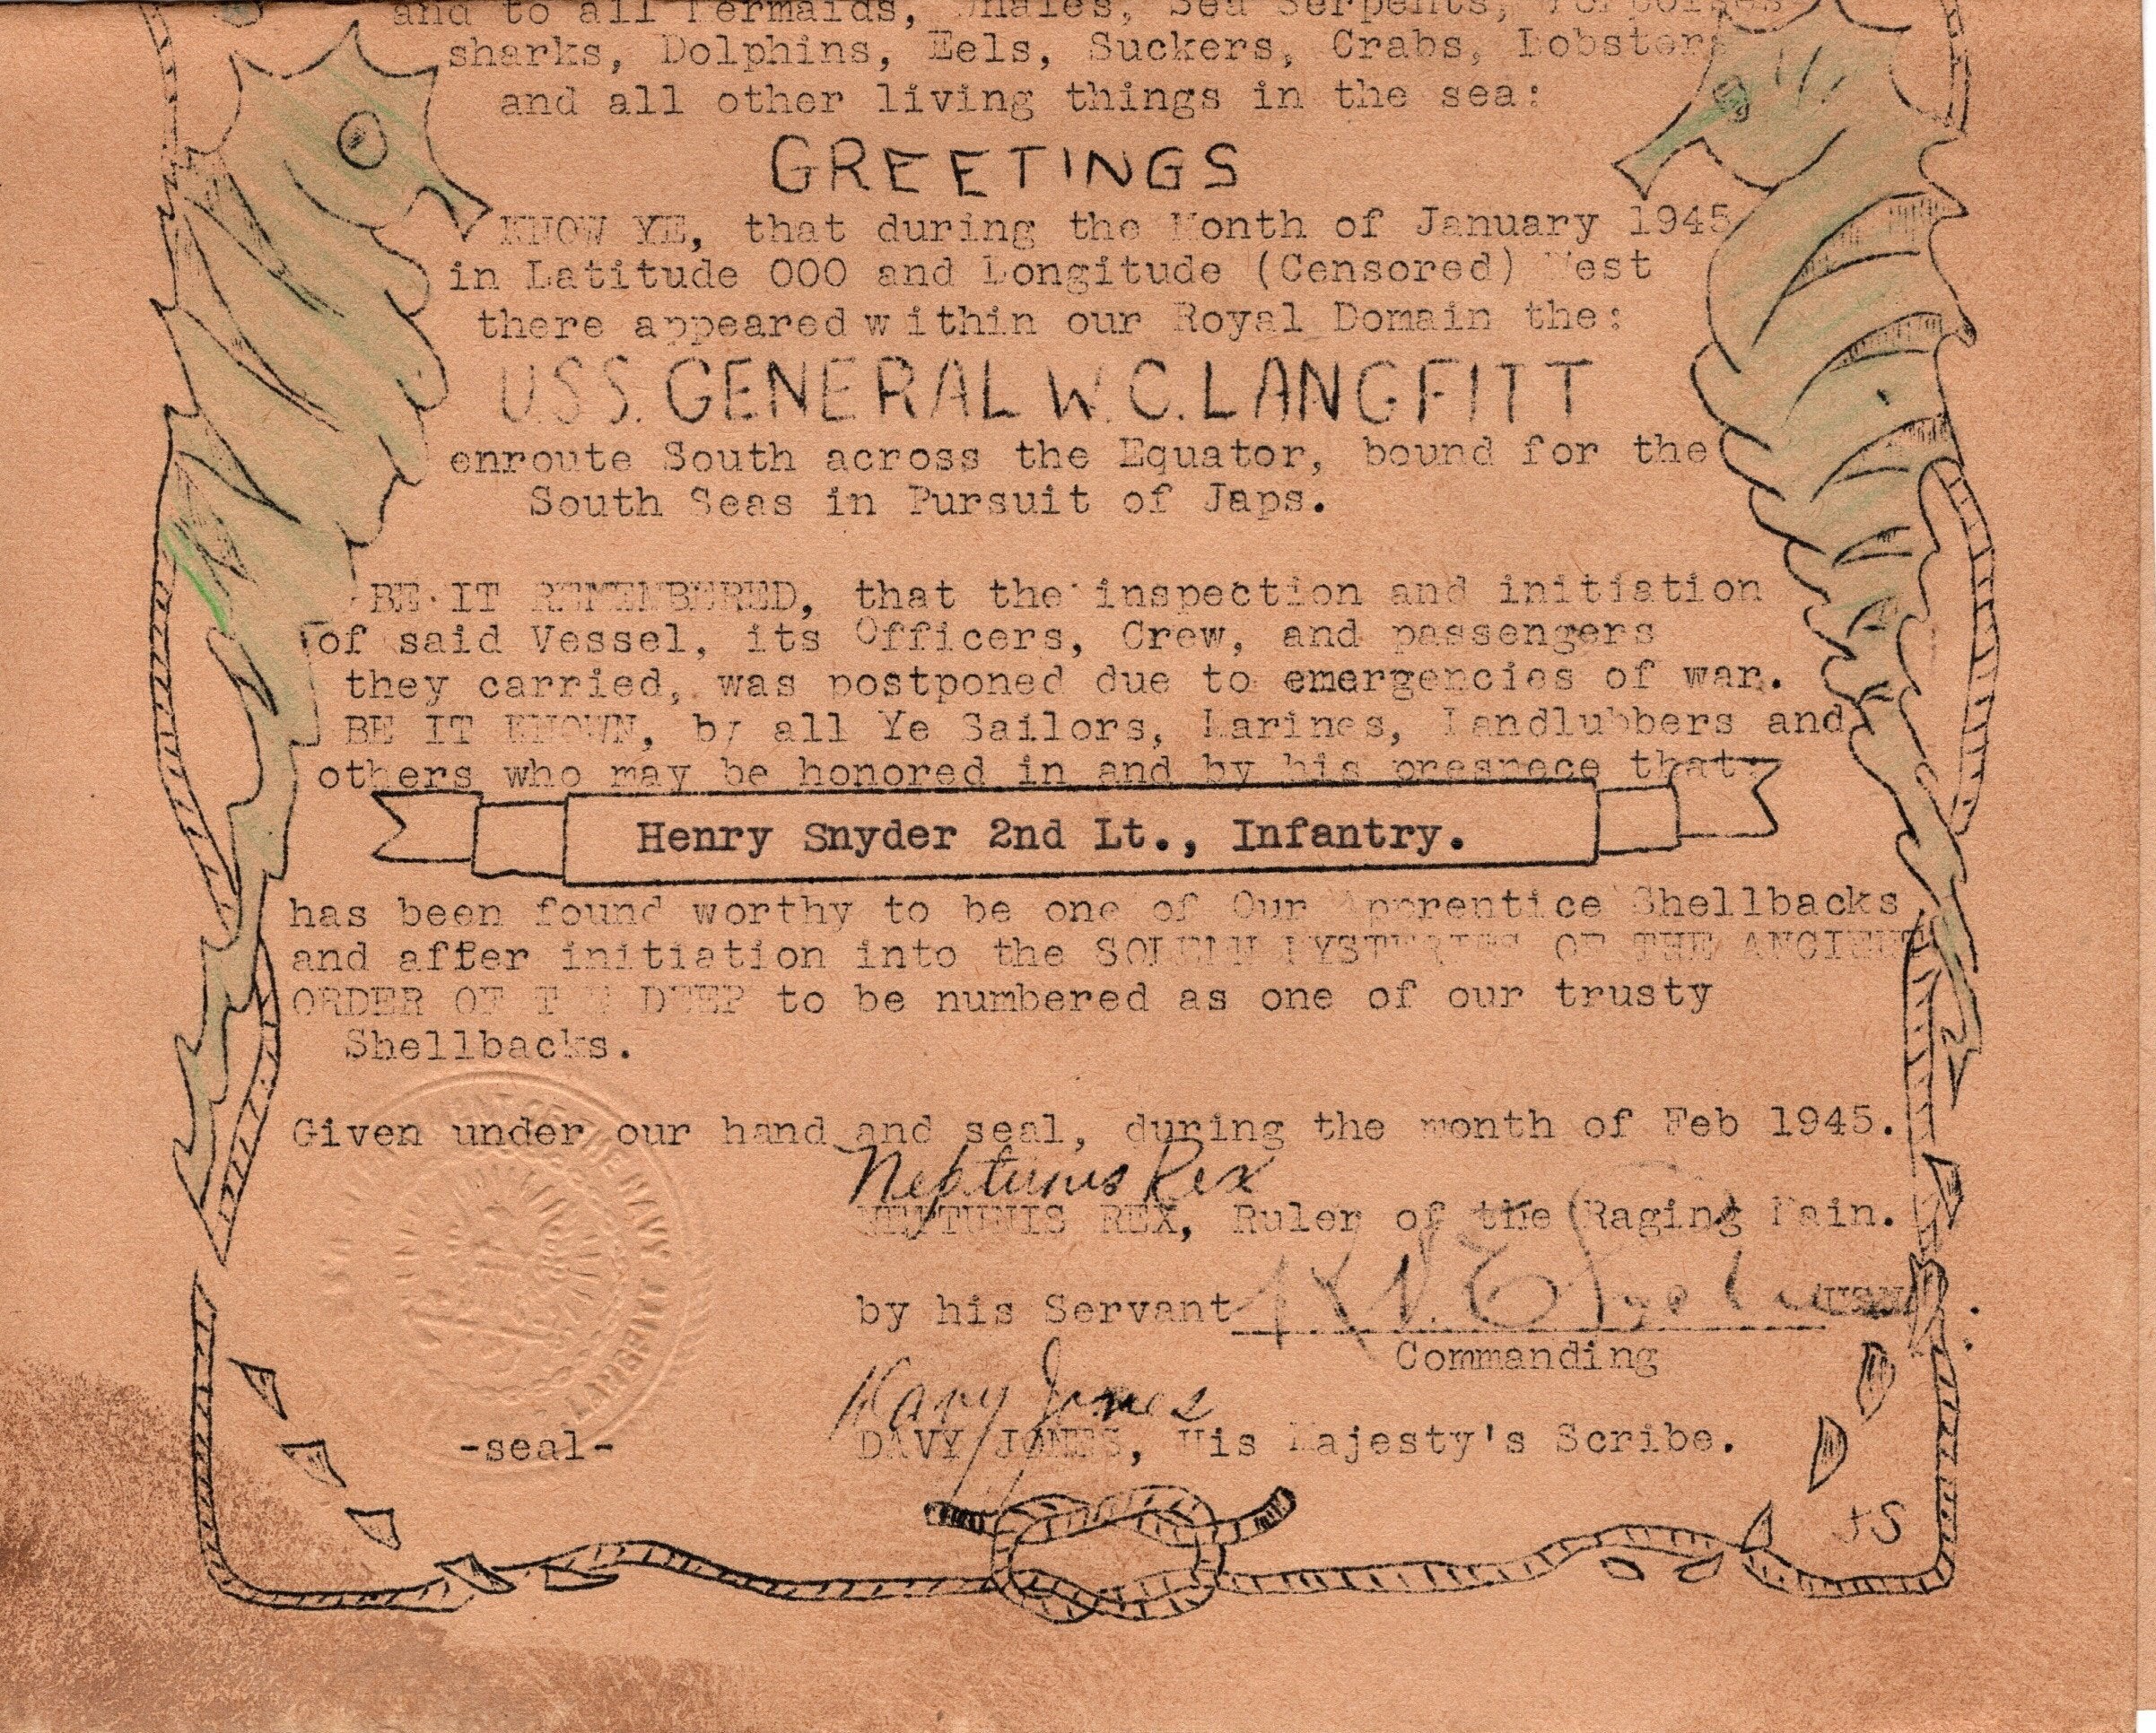 and to all Mermaids, Whales, Sea Serpents, Porpoises
sharks, Dolphins, Eels, Suckers, Crabs, Lobsters
and all other living things in the sea:
GREETINGS
KNOW YE, that during the Month of January 1945
in Latitude 000 and Longitude (Censored) West
there appeared within our Royal Domain the:
U.S.S. GENERAL W.C. LANGFITT
enroute South across the Equator, bound for the
South Seas in Pursuit of Japs.
BE IT REMEMBERED, that the inspection and initiation
of said Vessel, its Officers, Crew, and passengers
they carried, was postponed due to emergencies of war.
BE IT KNOWN, by all Ye Sailors, Marines, Landlubbers and
others who may be honored in and by his presnece that:
Henry Snyder 2nd Lt., Infantry.
has been found worthy to be one of Our Apprentice Shellbacks
and after initiation into the SOLEMN MYSTERIES OF THE ANCIENT
ORDER OF THE DEEP to be numbered as one of our trusty
Shellbacks.
Given under our hand and seal, during the month of Feb 1945.
Neptunus Rex
NEPTUNUS REX, Ruler of the Raging Main.
by his Servant USN
Commanding
Davy Jones
DAVY JONES, His Majesty's Scribe.
-seal-
NAVY
LANGFITT
JS